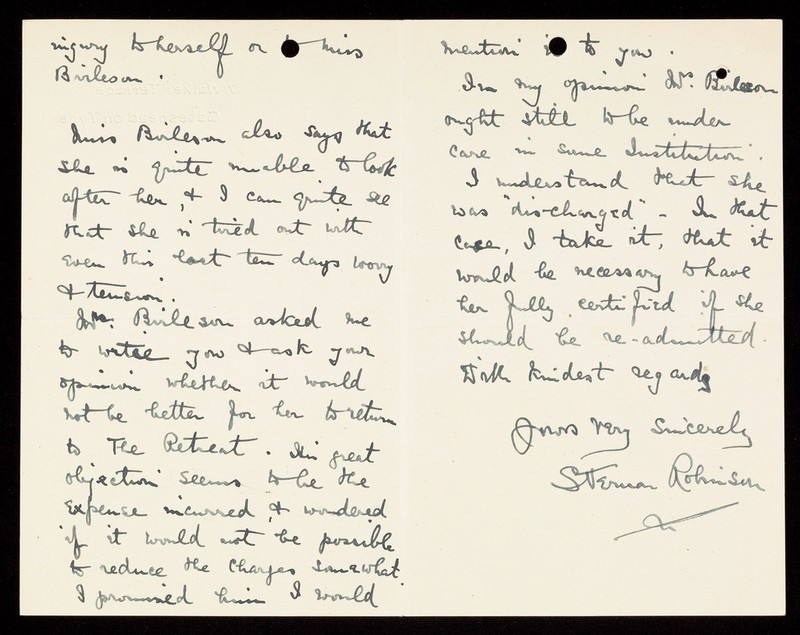 injury to herself or to Miss
Birleson.
Miss Birleson also says that
she is quite unable to look
after her, & I can quite see
that she is tired out with
even this last ten days worry
& tension.
Mr. Birleson asked me
to write you & ask your
opinion whether it would
not be better for her to return
to The Retreat. His great
objection seems to be the
expense incurred, & wondered
if it would not be possible
to reduce the charges somewhat.
I promised him I would
mention it to you.
In my opinion Mrs. Birleson
ought still to be under
care in some Institution.
I understand that she
was "discharged" - In that
case, I take it, that it
would be necessary to have
her fully certified if she
should be re-admitted.
With kindest regards
Yours very sincerely
Robinson